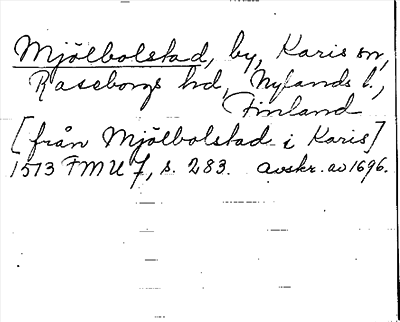 Mjölbolstad, by, Karis sn,
Raseborgs hd, Nylands l.,
Finland
[från Mjölbolstad i Karis]
1513 FMU 7, s. 283. avskr. av 1696.